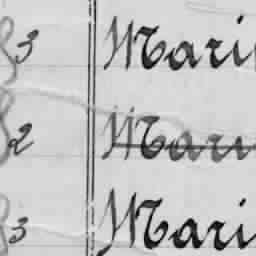 3 Mari
2 Mari
3 Mari